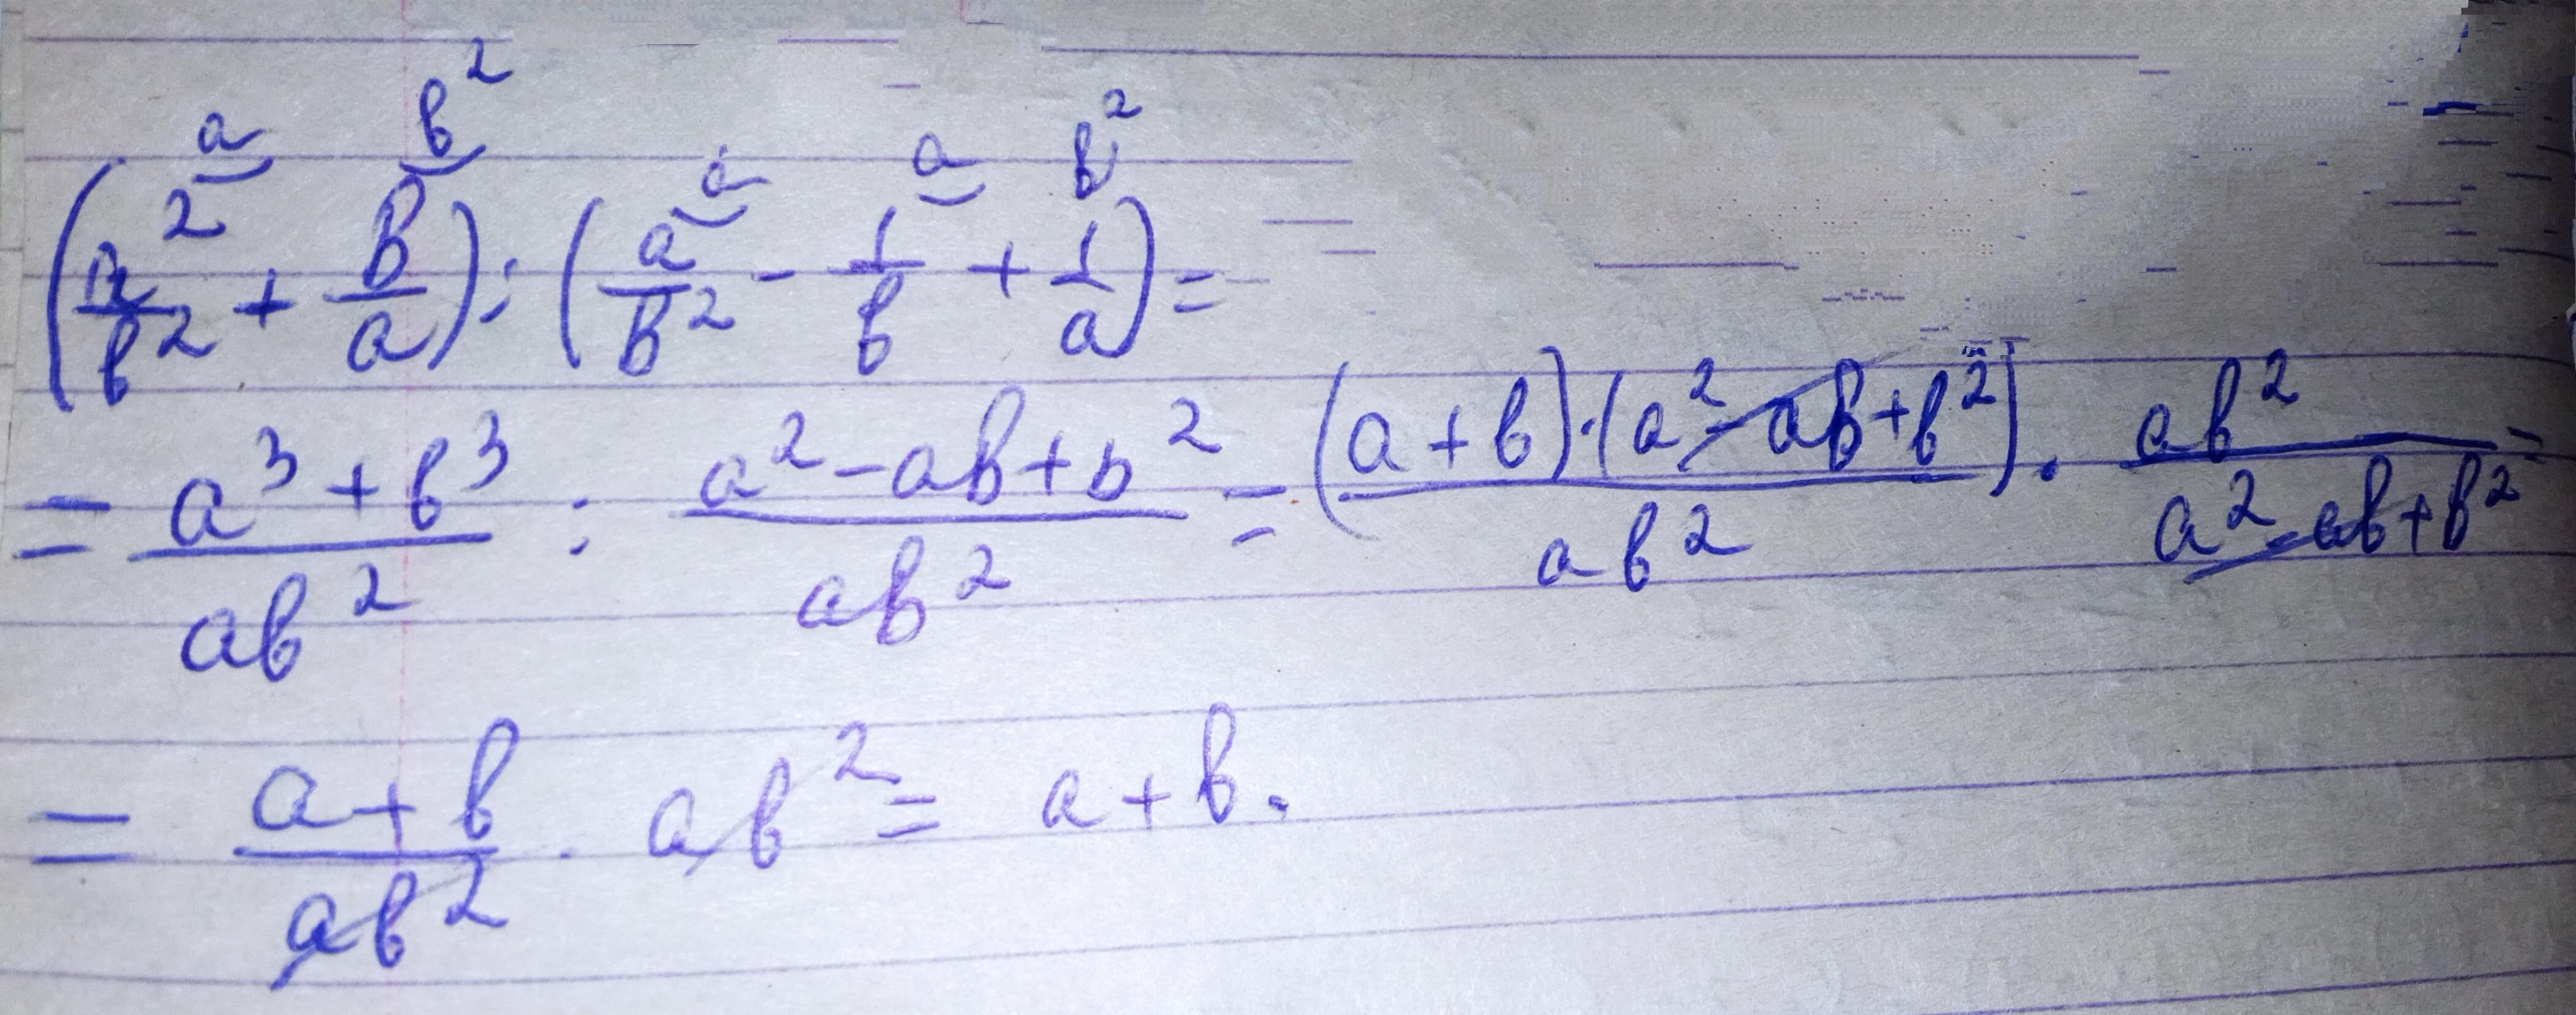 (a²/b² + b/a) : (a/b² - 1/b + 1/a) =
= (a³ + b³)/(ab²) : (a² - ab + b²)/(ab²) = ((a + b)·(a² - ab + b²))/(ab²) · (ab²)/(a² - ab + b²) =
= (a + b)/(ab²) · ab² = a + b.